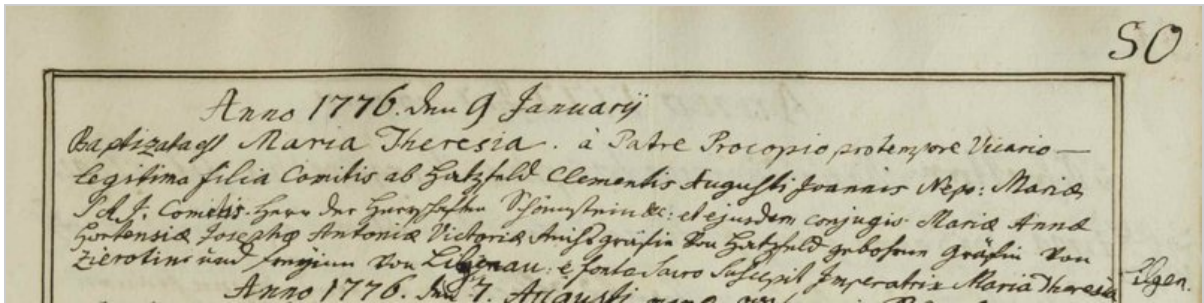 50
Anno 1776. den 9 Januarij
Baptizata est Maria Theresia. à Patre Procopio protempore Vicario —
Legitima filia Comitis ab Hatzfeld Clementis Augusti Joannis Nep: Mariæ
S. R. J. Comitis. Herr der Herrschafften Schönstein &c: et ejusdem conjugis Mariæ Annæ
Hortensiæ Josephæ Antoniæ Victoriæ gräfin von Hatzfeld gebohrnen Gräfin von
Zierotin und freyinn von Lilgenau: è fonte Sacro Suscepit Imperatrix Maria Theresia
Ilgen.
Anno 1776. den 7. Augusti